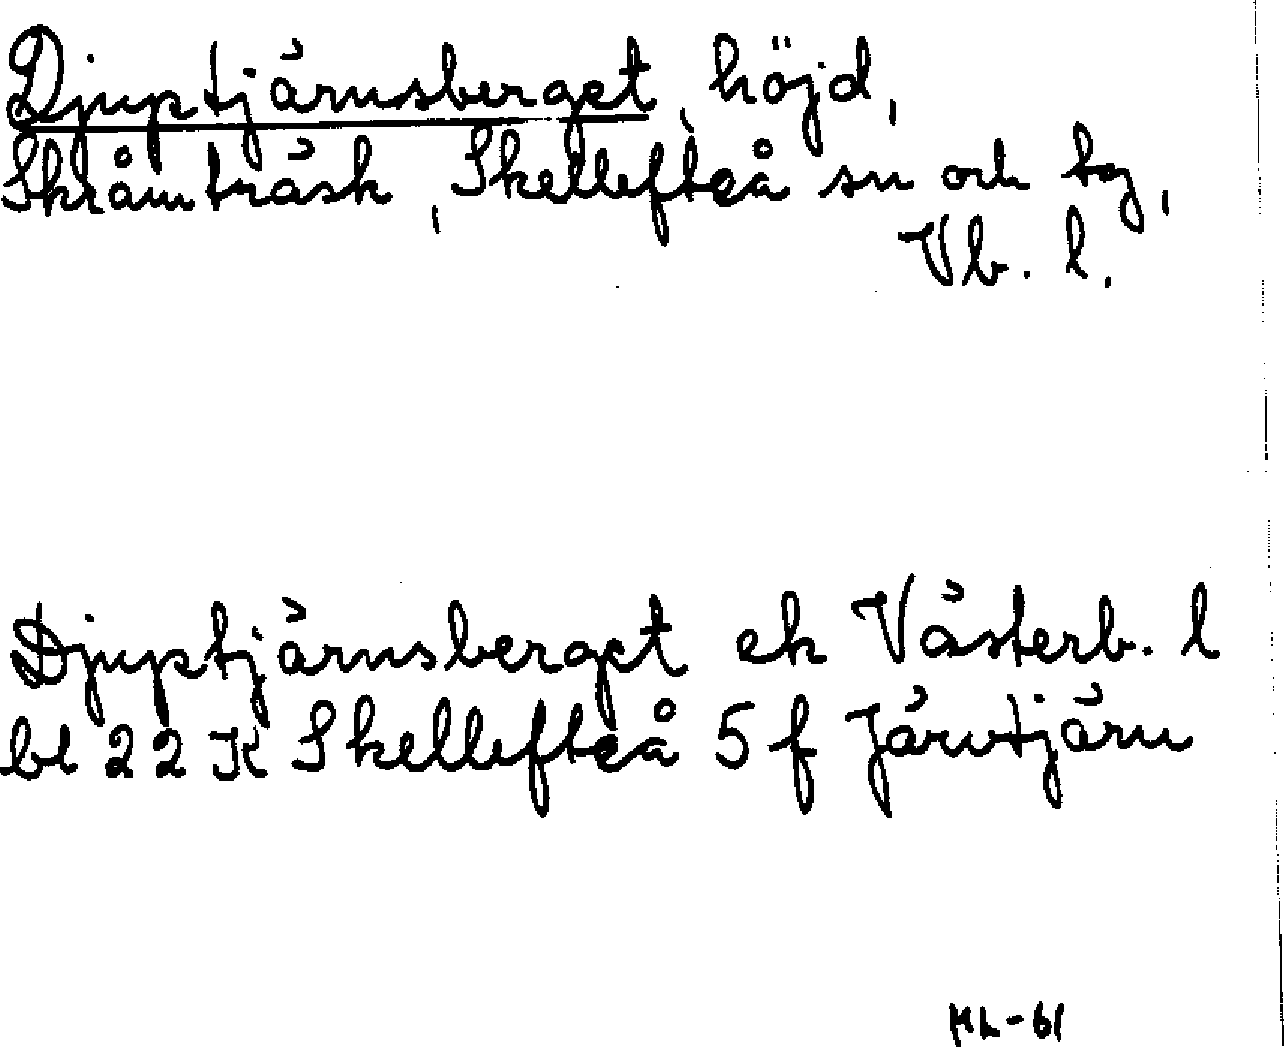 Djuptjärnsberget, höjd,
Skråmträsk, Skellefteå sn och tg,
Vb. l.
Djuptjärnsberget ek Västerb. l
bl 22 K Skellefteå 5 f Järvtjärn
ML-61